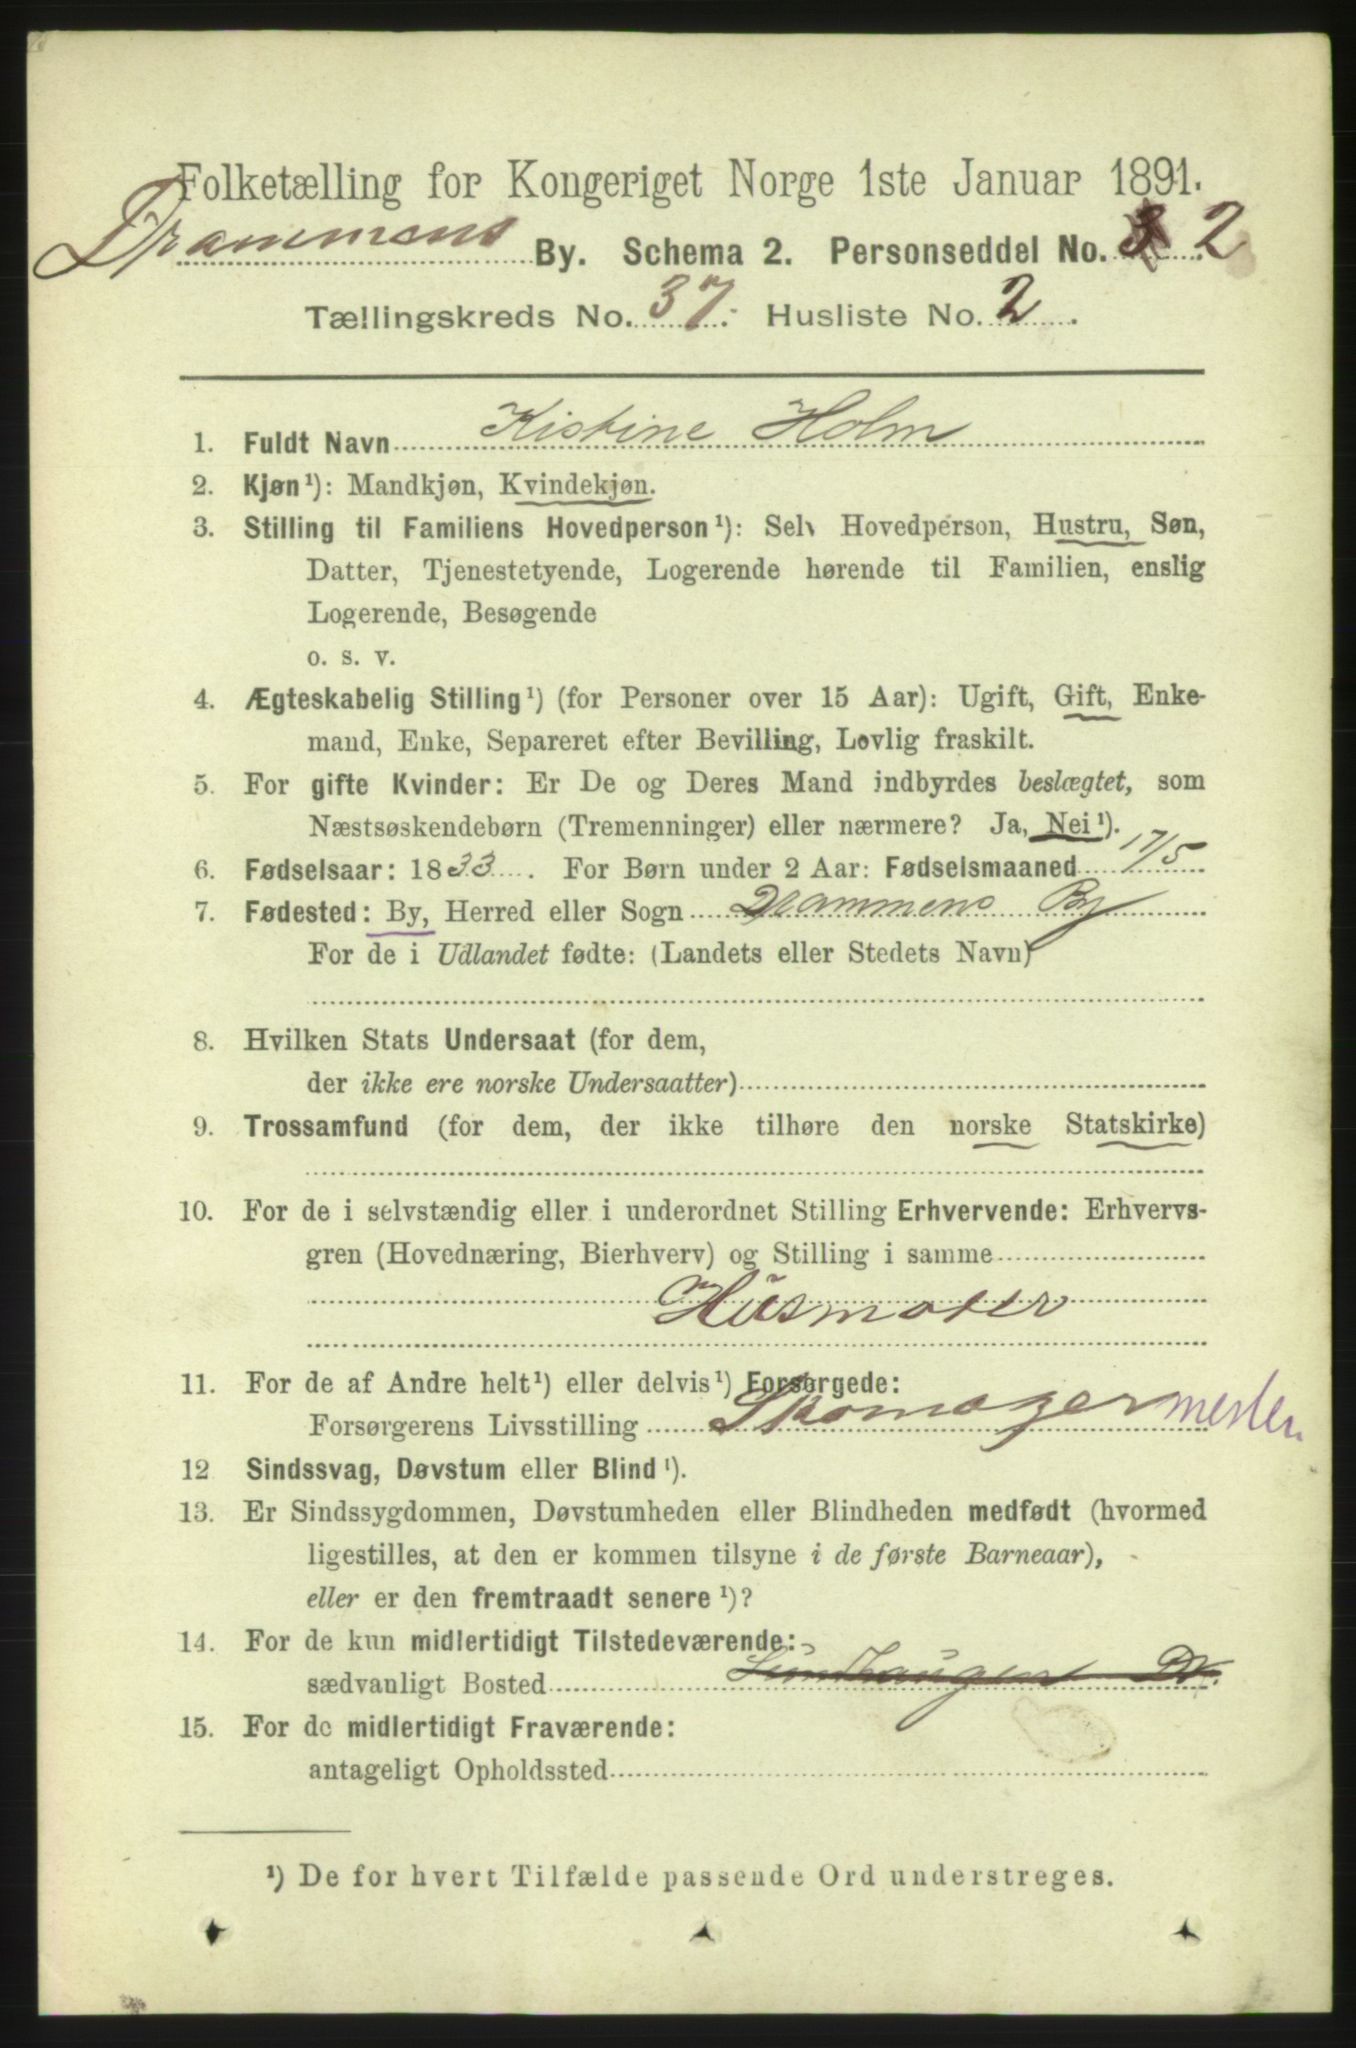 Folketælling for Kongeriget Norge 1ste Januar 1891.
Drammens By. Schema 2. Personseddel No. 3 2
Tællingskreds No. 37. Husliste No. 2.
1. Fuldt Navn Kistine Holm
2. Kjøn¹): Mandkjøn, Kvindekjøn.
3. Stilling til Familiens Hovedperson¹): Selv Hovedperson, Hustru, Søn,
Datter, Tjenestetyende, Logerende hørende til Familien, enslig
Logerende, Besøgende
o. s. v.
4. Ægteskabelig Stilling¹) (for Personer over 15 Aar): Ugift, Gift, Enke-
mand, Enke, Separeret efter Bevilling, Lovlig fraskilt.
5. For gifte Kvinder: Er De og Deres Mand indbyrdes beslægtet, som
Næstsøskendebørn (Tremenninger) eller nærmere? Ja, Nei¹).
6. Fødselsaar: 1833. For Børn under 2 Aar: Fødselsmaaned 17/5
7. Fødested: By, Herred eller Sogn Drammens By
For de i Udlandet fødte: (Landets eller Stedets Navn)
8. Hvilken Stats Undersaat (for dem,
der ikke ere norske Undersaatter)
9. Trossamfund (for dem, der ikke tilhøre den norske Statskirke)
10. For de i selvstændig eller i underordnet Stilling Erhvervende: Erhvervs-
gren (Hovednæring, Bierhverv) og Stilling i samme
Husmoder
11. For de af Andre helt¹) eller delvis¹) Forsørgede:
Forsørgerens Livsstilling Skomagermester
12 Sindssvag, Døvstum eller Blind¹).
13. Er Sindssygdommen, Døvstumheden eller Blindheden medfødt (hvormed
ligestilles, at den er kommen tilsyne i de første Barneaar),
eller er den fremtraadt senere¹)?
14. For de kun midlertidigt Tilstedeværende:
sædvanligt Bosted
15. For de midlertidigt Fraværende:
antageligt Opholdssted
¹) De for hvert Tilfælde passende Ord understreges.